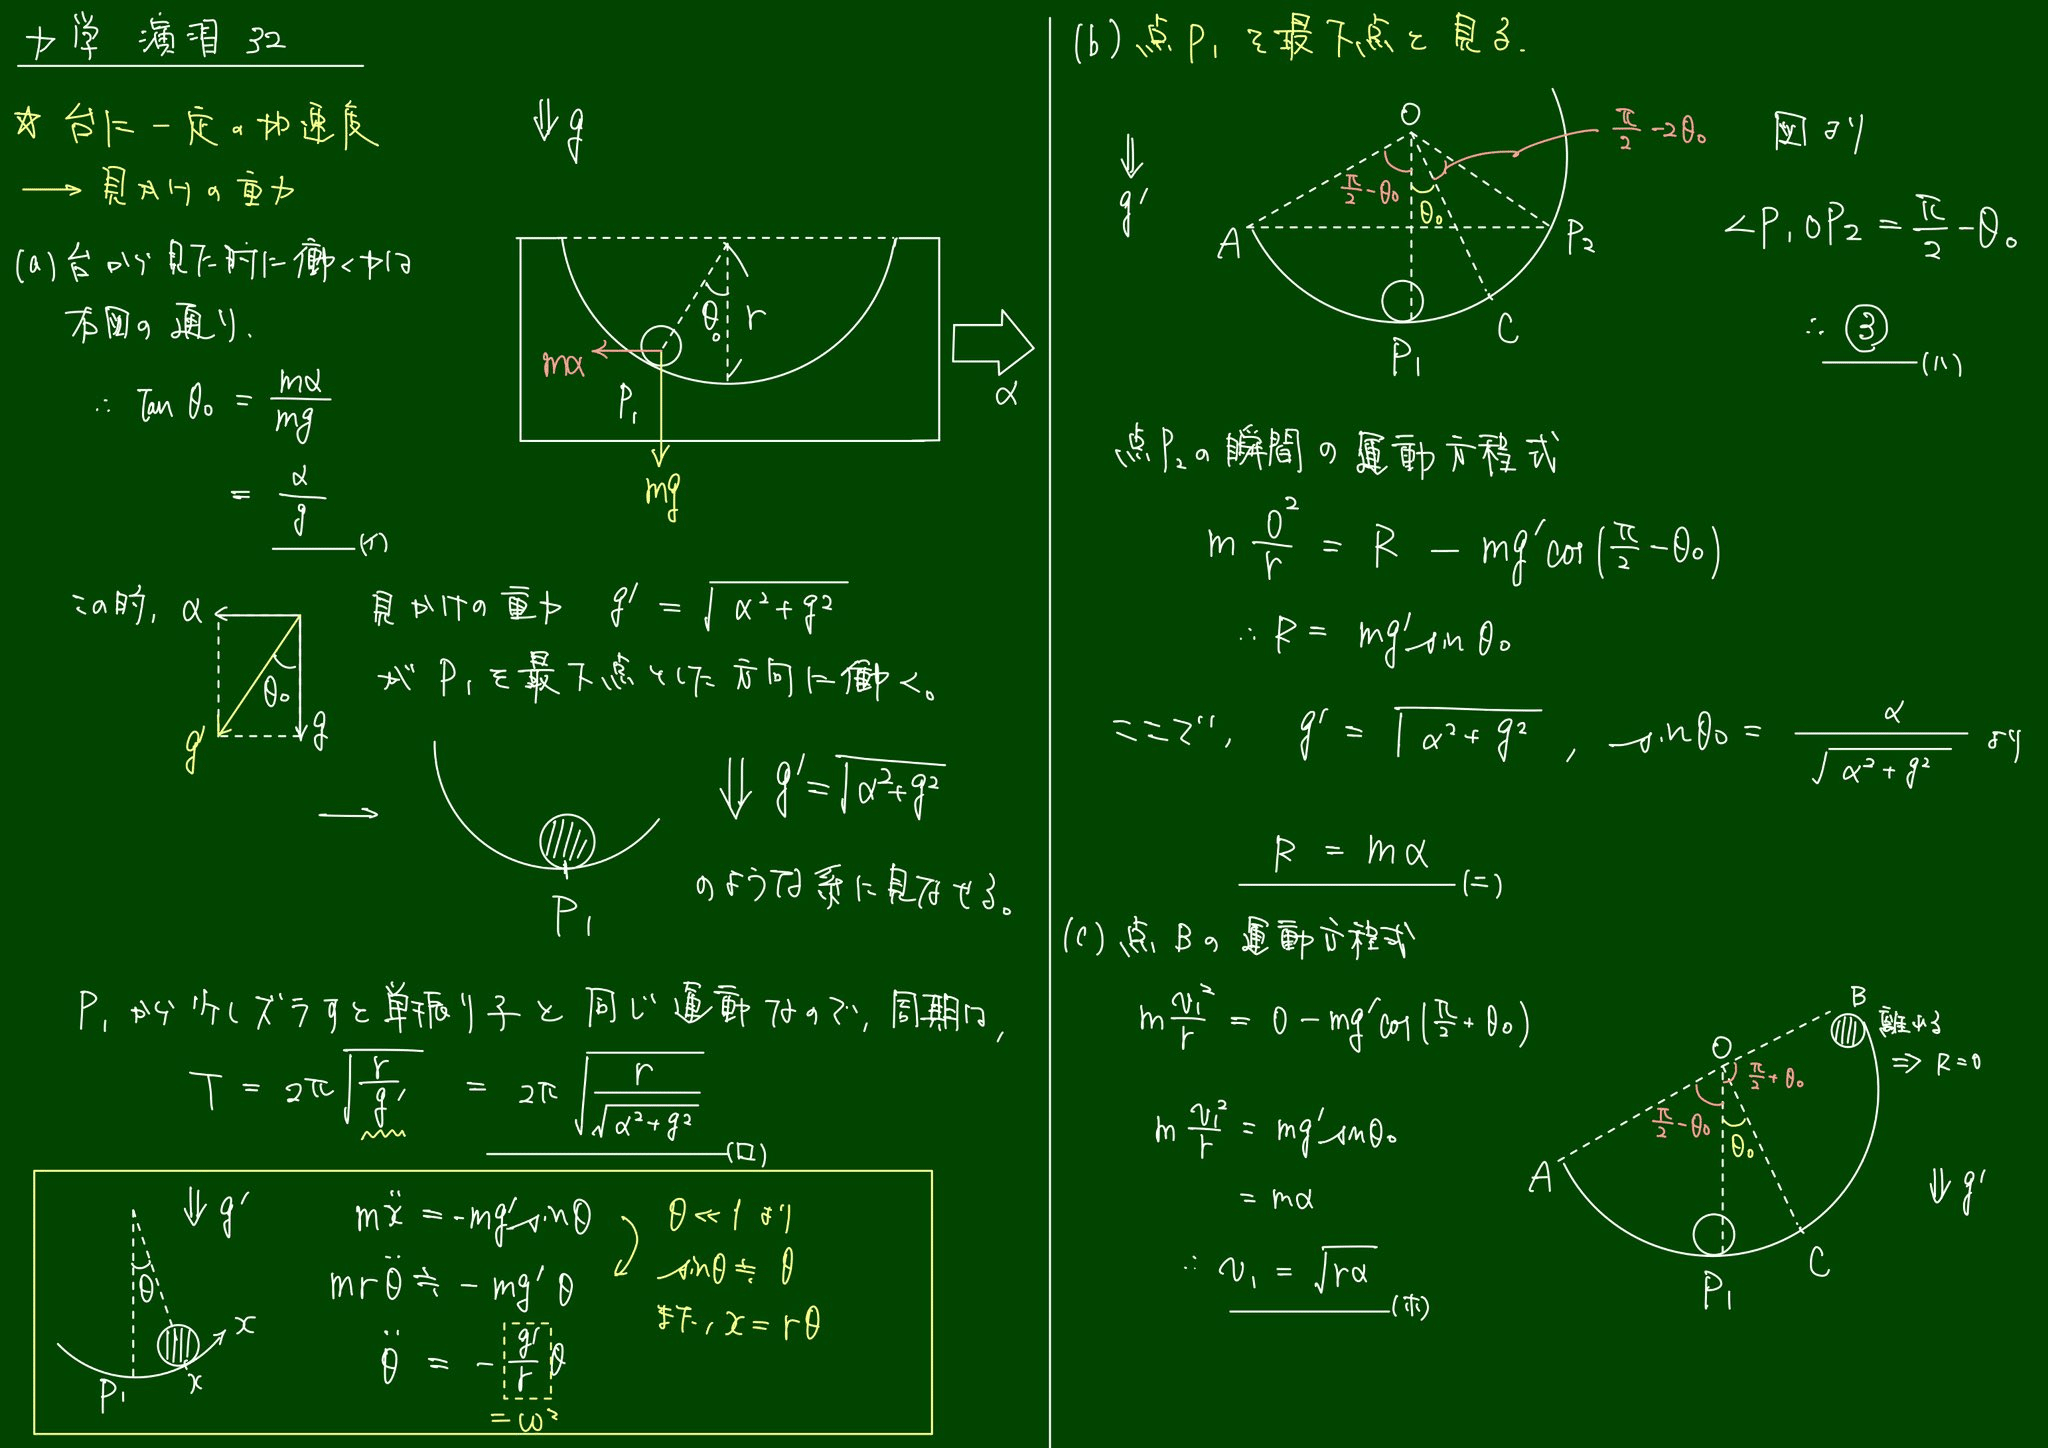 力学 演習 32
☆ 台に一定の加速度
→ 見かけの重力
⇓ g
(a) 台から見た時に働く力は
右図の通り.
∴ tan θ₀ = mα/mg
= α/g (イ)
θ₀ r
mα
P₁
mg
α
この時, α
θ₀
g' g
見かけの重力 g' = √(α²+g²)
が P₁ を最下点とした方向に働く。
→
⇓ g' = √(α²+g²)
P₁
のような系に見なせる。
P₁ から少しズラすと単振り子と同じ運動なので, 周期は,
T = 2π√(r/g') = 2π√(r/√(α²+g²)) (ロ)
⇓ g'
θ
x
P₁ x
mẍ = -mg' sinθ
mrθ̈ ≒ -mg'θ
θ̈ = -(g'/r)θ
= ω²
θ ≪ 1 より
sinθ ≒ θ
また, x = rθ
(b) 点P₁ を最下点と見る.
⇓ g'
O
π/2 - 2θ₀
π/2 - θ₀
θ₀
A P₂
C
P₁
図より
∠P₁OP₂ = π/2 - θ₀
∴ ③ (ハ)
点P₂の瞬間の運動方程式
m 0²/r = R - mg' cos(π/2 - θ₀)
∴ R = mg' sinθ₀
ここで, g' = √(α²+g²) , sinθ₀ = α/√(α²+g²) より
R = mα (ニ)
(c) 点Bの運動方程式
m v₁²/r = 0 - mg' cos(π/2 + θ₀)
m v₁²/r = mg' sinθ₀
= mα
∴ v₁ = √(rα) (ホ)
B
離れる
⇒ R = 0
O
π/2 + θ₀
π/2 - θ₀
θ₀
A
C
P₁
⇓ g'